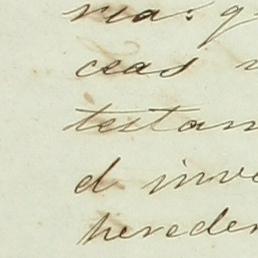 ria: q
ceas
testam
d inve
hereder